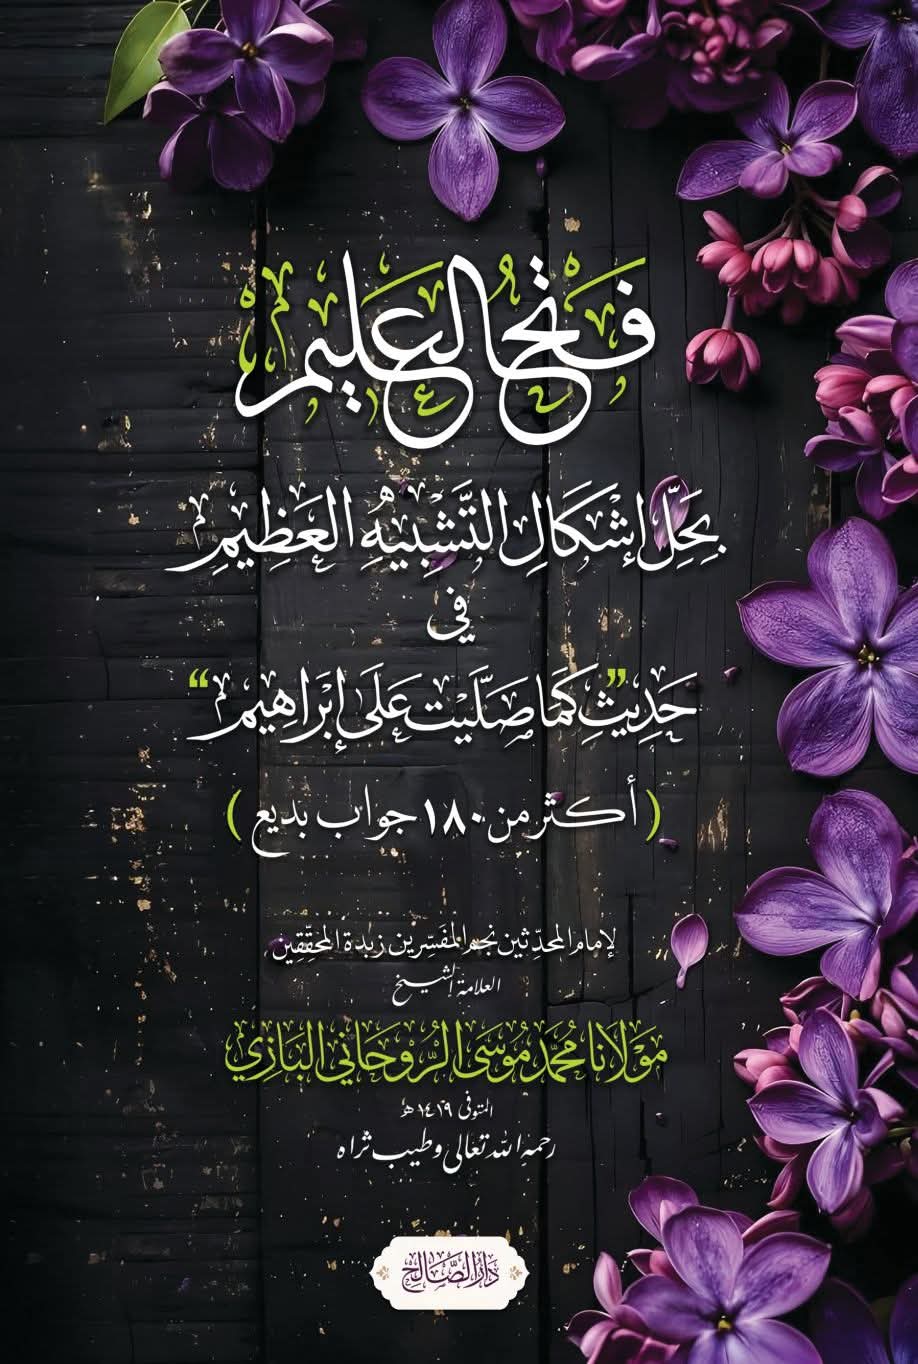 فَتْحُ العَلِيمِ
بِحَلِّ إِشْكَالِ التَّشْبِيْهِ العَظِيْمِ
فِي
حَدِيْثِ "كَمَا صَلَّيْتَ عَلَى إِبْرَاهِيْمَ"
( أكثر من ١٨٠ جواب بديع )
لإمام المحدّثين نجم المفسّرين زبدة المحقّقين
العلامة الشيخ
مَوْلَانَا مُحَمَّد مُوْسَى الرُّوْحَانِي البَازِي
المتوفى ١٤١٩ هـ
رحمه الله تعالى وطيب ثراه
دَارُ الصَّالِح